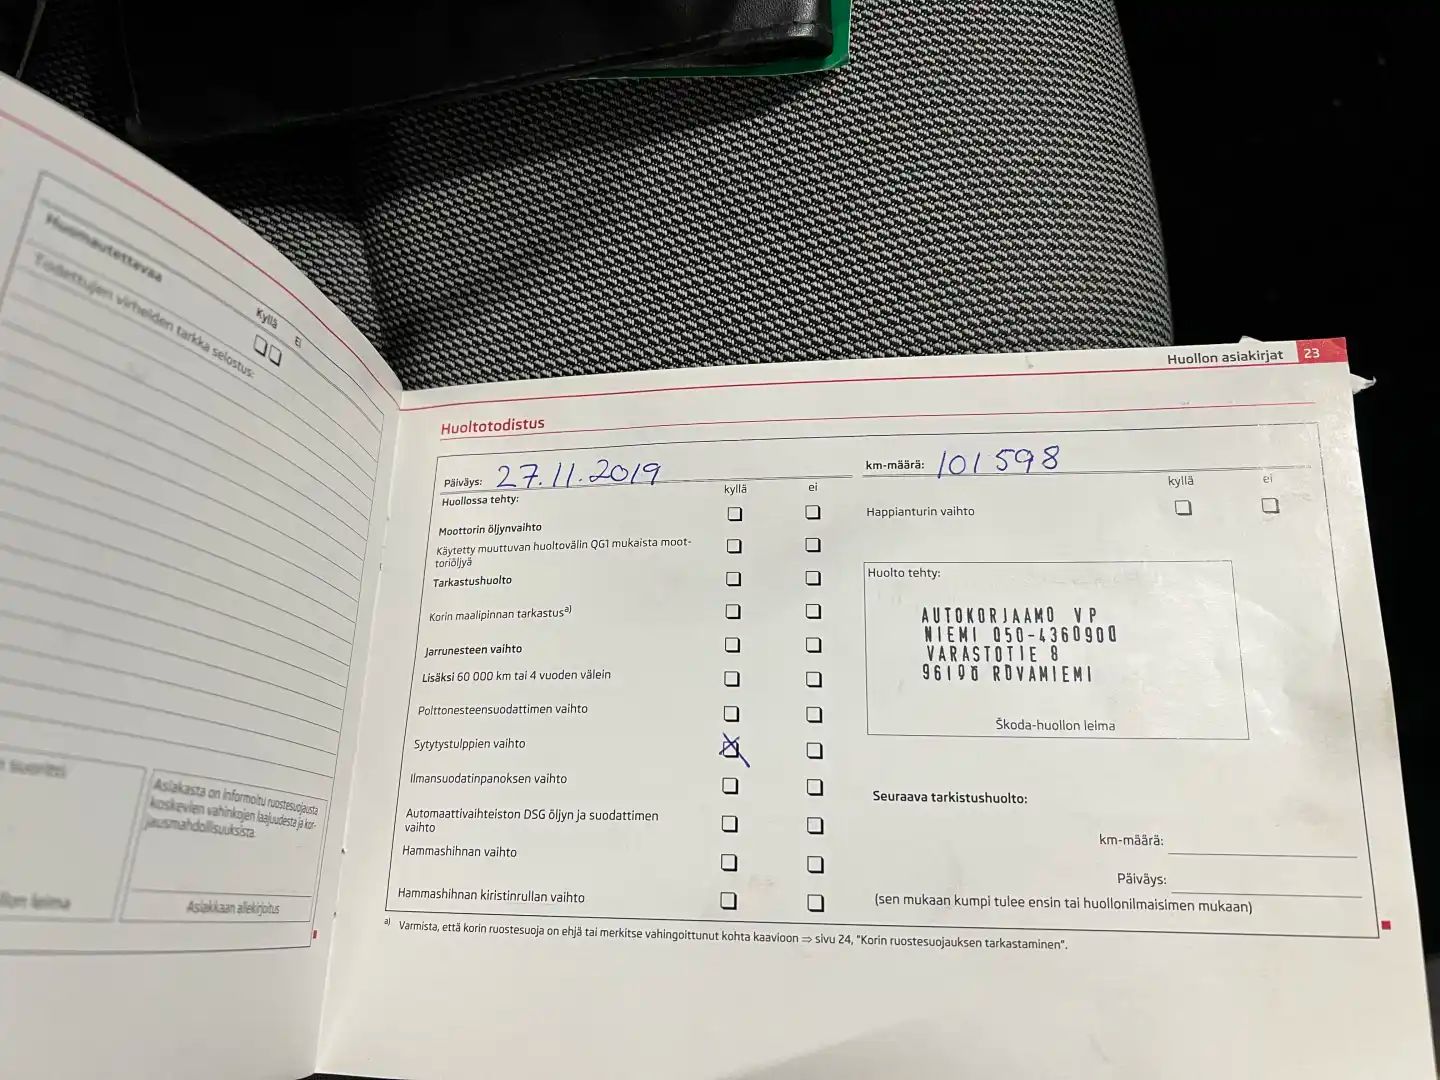 Huomautettavaa
Todettujen virheiden tarkka selostus:
Kyllä
Ei
Asiakasta on informoitu ruostesuojausta
koskevien vahinkojen laajuudesta ja kor-
jausmahdollisuuksista.
Asiakkaan allekirjoitus
leima
Huollon asiakirjat 23
Huoltotodistus
Päiväys: 27.11.2019
km-määrä: 101 598
Huollossa tehty:
kyllä ei
kyllä ei
Moottorin öljynvaihto
Happianturin vaihto
Käytetty muuttuvan huoltovälin QG1 mukaista moot-
toriöljyä
Tarkastushuolto
Korin maalipinnan tarkastus a)
Jarrunesteen vaihto
Lisäksi 60 000 km tai 4 vuoden välein
Polttonesteensuodattimen vaihto
Sytytystulppien vaihto
Ilmansuodatinpanoksen vaihto
Automaattivaihteiston DSG öljyn ja suodattimen
vaihto
Hammashihnan vaihto
Hammashihnan kiristinrullan vaihto
Huolto tehty:
AUTOKORJAAMO VP
NIEMI 050-4360900
VARASTOTIE 8
96190 ROVANIEMI
Škoda-huollon leima
Seuraava tarkistushuolto:
km-määrä:
Päiväys:
(sen mukaan kumpi tulee ensin tai huollonilmaisimen mukaan)
a) Varmista, että korin ruostesuoja on ehjä tai merkitse vahingoittunut kohta kaavioon ⇒ sivu 24, "Korin ruostesuojauksen tarkastaminen".